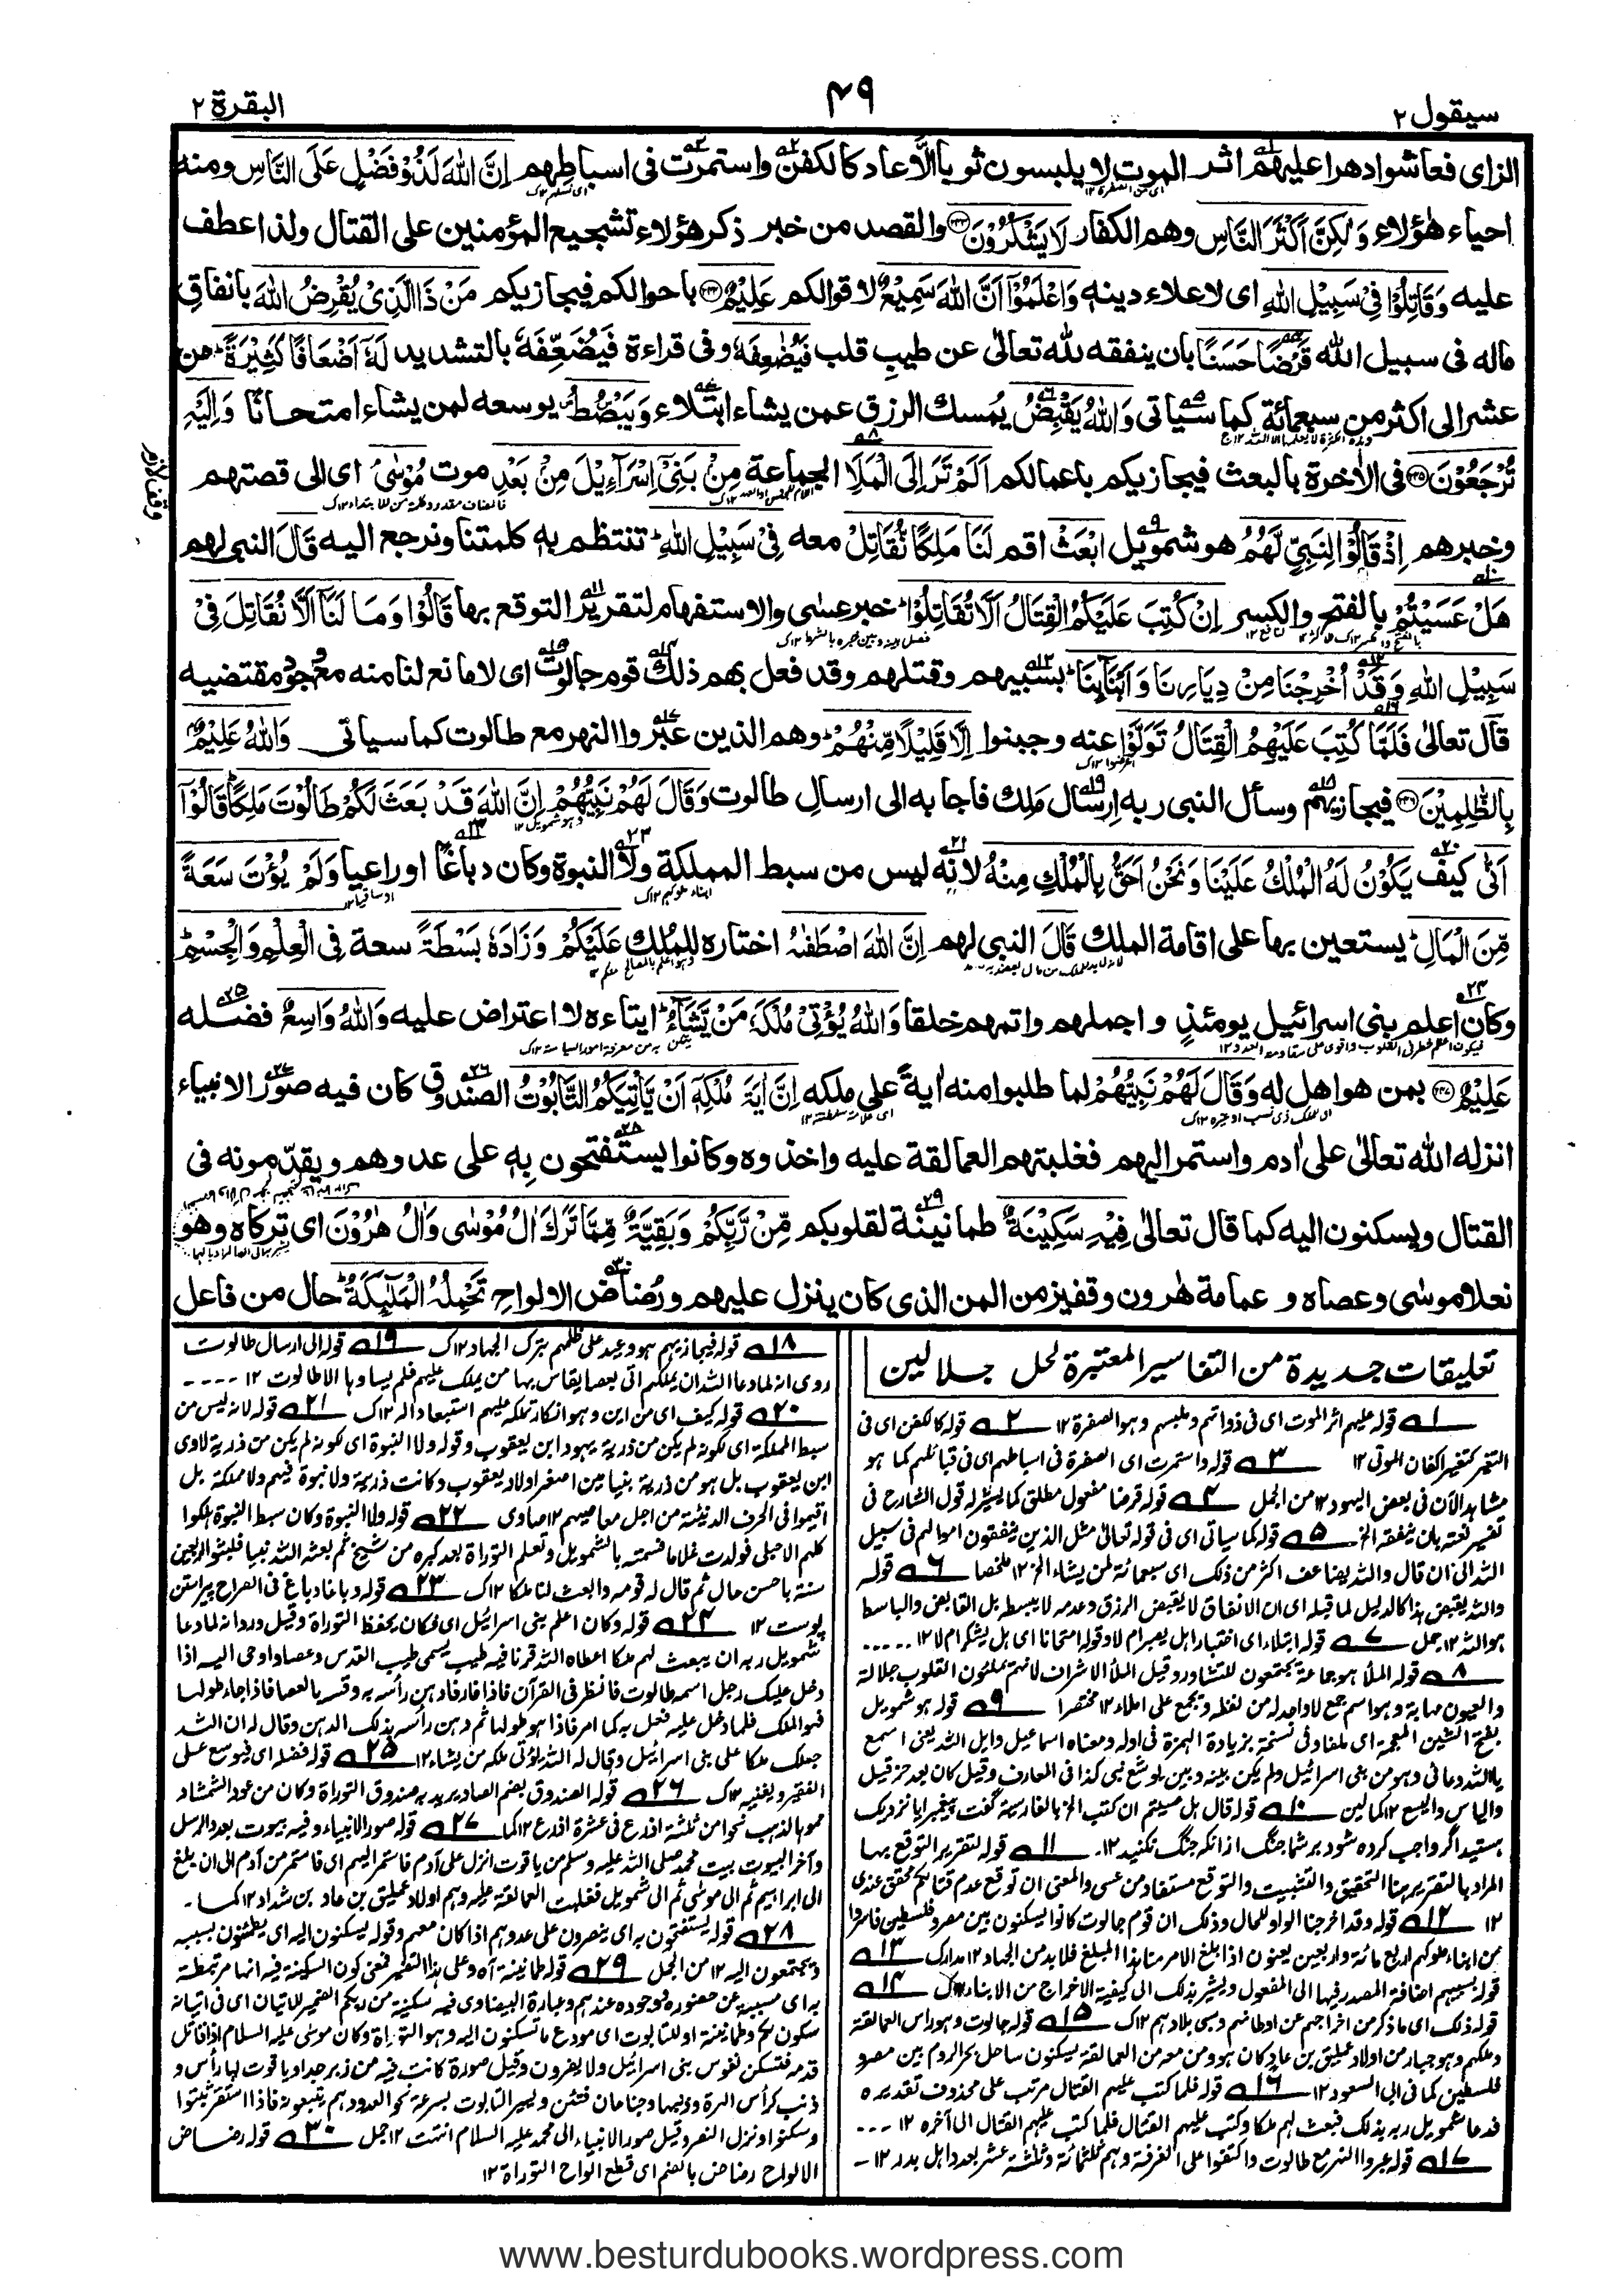 سيقول ٢
٣٩
البقرة ٢
الزای فعاشوا دهرا عليهم اثر الموت لا يلبسون ثوبا الّا عاد كالكفن واستمرت فی اسباطهم اِنَّ اللّٰهَ لَذُوْ فَضْلٍ عَلَی النَّاسِ ومنه
احياء هٰؤلاء وَلٰكِنَّ اَكْثَرَ النَّاسِ وهم الكفار لَا يَشْكُرُوْنَ ۝ والقصد من خبر ذكر هؤلاء تشجيع المؤمنين علی القتال ولذا عطف
عليه وَقَاتِلُوْا فِیْ سَبِيْلِ اللّٰهِ ای لاعلاء دينه وَاعْلَمُوْٓا اَنَّ اللّٰهَ سَمِيْعٌ لاقوالكم عَلِيْمٌ ۝ باحوالكم فيجازيكم مَنْ ذَا الَّذِیْ يُقْرِضُ اللّٰهَ بانفاق
ماله فی سبيل الله قَرْضًا حَسَنًا بان ينفقه لله تعالیٰ عن طيبِ قلب فَيُضٰعِفَهٗ وفی قراءة فَيُضَعِّفَهٗ بالتشديد لَهٗٓ اَضْعَافًا كَثِيْرَةً من
عشر الی اكثر من سبعمائة كما سياتی وَاللّٰهُ يَقْبِضُ يُمسك الرزق عمن يشاء ابتلاء وَيَبْصُۜطُ يوسعه لمن يشاء امتحانا وَاِلَيْهِ
تُرْجَعُوْنَ ۝ فی الاٰخرة بالبعث فيجازيكم باعمالكم اَلَمْ تَرَ اِلَی الْمَلَاِ الجماعة مِنْۢ بَنِیْٓ اِسْرَآءِيْلَ مِنْۢ بَعْدِ موت مُوْسٰی ای الی قصتهم
وخبرهم اِذْ قَالُوْا لِنَبِیٍّ لَّهُمُ هو شمويل ابْعَثْ اقم لَنَا مَلِكًا نُّقَاتِلْ معه فِیْ سَبِيْلِ اللّٰهِ تنتظم بهٖ كلمتنا ونرجع اليه قَالَ النبی لهم
هَلْ عَسَيْتُمْ بالفتح والكسر اِنْ كُتِبَ عَلَيْكُمُ الْقِتَالُ اَلَّا تُقَاتِلُوْا خبر عسٰی والاستفهام لتقرير التوقع بها قَالُوْا وَمَا لَنَآ اَلَّا نُقَاتِلَ فِیْ
سَبِيْلِ اللّٰهِ وَقَدْ اُخْرِجْنَا مِنْ دِيَارِنَا وَاَبْنَآئِنَا بسبيهم وقتلهم وقد فعل بهم ذلك قوم جالوت ای لا مانع لنا منه مع وجود مقتضيه
قال تعالیٰ فَلَمَّا كُتِبَ عَلَيْهِمُ الْقِتَالُ تَوَلَّوْا عنه وجبنوا اِلَّا قَلِيْلًا مِّنْهُمْ وهم الذين عبروا النهر مع طالوت كما سياتی وَاللّٰهُ عَلِيْمٌۢ
بِالظّٰلِمِيْنَ ۝ فيجازيهم وسأل النبی ربه ارسال ملك فاجابه الی ارسالِ طالوت وَقَالَ لَهُمْ نَبِيُّهُمْ اِنَّ اللّٰهَ قَدْ بَعَثَ لَكُمْ طَالُوْتَ مَلِكًا قَالُوْٓا
اَنّٰی كيف يَكُوْنُ لَهُ الْمُلْكُ عَلَيْنَا وَنَحْنُ اَحَقُّ بِالْمُلْكِ مِنْهُ لانه ليس من سبط المملكة ولا النبوة وكان دباغا او راعيا وَلَمْ يُؤْتَ سَعَةً
مِّنَ الْمَالِ يستعين بها علی اقامة الملك قَالَ النبی لهم اِنَّ اللّٰهَ اصْطَفٰىهُ اختاره للملك عَلَيْكُمْ وَزَادَهٗ بَسْطَةً سعة فِی الْعِلْمِ وَالْجِسْمِ
وكان اعلم بنی اسرائيل يومئذٍ واجملهم واتمهم خلقا وَاللّٰهُ يُؤْتِیْ مُلْكَهٗ مَنْ يَّشَآءُ ايتاءه لا اعتراض عليه وَاللّٰهُ وَاسِعٌ فضله
عَلِيْمٌ ۝ بمن هو اهل له وَقَالَ لَهُمْ نَبِيُّهُمْ لما طلبوا منه اٰيةً علی ملكه اِنَّ اٰيَةَ مُلْكِهٖٓ اَنْ يَّاْتِيَكُمُ التَّابُوْتُ الصندوق كان فيه صور الانبياء
انزله الله تعالیٰ علی اٰدم واستمر اليهم فغلبتهم العمالقة عليه واخذوه وكانوا يستفتحون بهٖ علی عدوهم ويقدّمونه فی
القتال ويسكنون اليه كما قال تعالیٰ فِيْهِ سَكِيْنَةٌ طمانينة لقلوبكم مِّنْ رَّبِّكُمْ وَبَقِيَّةٌ مِّمَّا تَرَكَ اٰلُ مُوْسٰی وَاٰلُ هٰرُوْنَ ای تركاه وهو
نعلا موسٰی وعصاه وعمامة هٰرون وقفيز من المن الذی كان ينزل عليهم ورُضاض الالواح تَحْمِلُهُ الْمَلٰٓئِكَةُ حال من فاعل
تعليقات جديدة من التفاسير المعتبرة لحل جلالين
١ قوله عليهم اثر الموت ای فی ذواتهم وملبسهم وهو الصفرة ١٢ ٢ قوله كالكفن ای فی
التغير كتغير اكفان الموتی ١٢ ٣ قوله واستمرت ای الصفرة فی اسباطهم ای فی قبائلهم كما هو
مشاهد الآن فی بعض اليهود ١٢ من الجمل ٤ قوله قرضا مفعول مطلق كما يشير له قول الشارح فی
٥ قوله كما سياتی ای فی قوله تعالیٰ مثل الذين ينفقون اموالهم فی سبيل
الله الی ان قال والله يضاعف اكثر من ذلك ای سبعمائة لمن يشاء الخ ١٢ ملخصا ٦ قوله
والله يقبض هذا كالدليل لما قبله ای ان الانفاق لا يقبض الرزق وعدمه لا يبسطه بل القابض والباسط
هو الله ١٢ جمل ٧ قوله ابتلاء ای اختبارا هل يصبر ام لا وقوله امتحانا ای هل يشكر ام لا ١٢
٨ قوله الملأ هو جماعة يجتمعون للتشاور وقيل الملأ الاشراف لانهم يملئون القلوب جلالة
والعيون مهابة وهو اسم جمع لا واحد له من لفظه ويجمع علی املاء ١٢ مختصرا ٩ قوله هو شمويل
بفتح الشين المعجمة وفی نسخة بزيادة الهمزة فی اوله ومعناه اسماعيل
١٠ قوله قال هل عسيتم ان كتب الخ بالفارسية
١١ قوله لتقرير التوقع بها
المراد بالتقرير هنا التحقيق والتثبيت والتوقع مستفاد من عسی والمعنی ان توقع عدم قتالكم محقق عندی
١٢ ١٢ قوله وقد اخرجنا الواو للحال وذلك ان قوم جالوت كانوا يسكنون بين مصر وفلسطين فاسروا
من ابناء ملوكهم اربع مائة واربعين يعنون اذا بلغ الامر منا هذا المبلغ فلا بد من الجهاد ١٢ مدارك ١٣
قوله بسبيهم اضافة المصدر فيها الی المفعول ويشير بذلك الی كيفية الاخراج من الابناء ١٢ك ١٤
قوله ذلك ای ما ذكر من اخراجهم عن اوطانهم وسبی بلادهم ١٢ك ١٥ قوله جالوت وهو راس العمالقة
وملكهم وهو جبار من اولاد عمليق بن عاد كان هو ومن معه من العمالقة يسكنون ساحل بحر الروم بين مصر و
فلسطين كما فی ابی السعود ١٢ ١٦ قوله فلما كتب عليهم القتال مرتب علی محذوف تقديره
فدعا شمويل ربه بذلك فبعث لهم ملكا وكتب عليهم القتال فلما كتب عليهم القتال الی آخره ١٢
١٧ قوله عبروا النهر مع طالوت واكتفوا علی الغرفة وهم ثلثمائة وثلثة عشر بعدد اهل بدر ١٢
١٨ قوله فيجازيهم هو وعيد علی ظلمهم بترك الجهاد ١٢ك ١٩ قوله الی ارسال طالوت
روی انه لما دعا الله ان يملكهم اتی بعصا يقاس بها من يملك عليهم فلم يساوها الا طالوت ١٢
٢٠ قوله كيف ای من اين وهو انكار تملكه عليهم استبعادا له ١٢ك ٢١ قوله لانه ليس من
سبط المملكة ای لكونه لم يكن من ذرية يهودا بن يعقوب وقوله ولا النبوة ای لكونه لم يكن من ذرية لاوی
ابن يعقوب بل هو من ذرية بنيامين اصغر اولاد يعقوب وكانت ذريته لا نبوة فيهم ولا مملكة بل
اقيموا فی الحرف الدنيئة من اجل معاصيهم ١٢ صاوی ٢٢ قوله ولا النبوة وكان سبط النبوة هلكوا
كلهم الا حبلی فولدت غلاما فسمته بالشمويل وتعلم التوراة بعد كبره من شيخ ثم بعثه الله نبيا فلبثوا اربعين
سنة باحسن حال ثم قال له قومه وابعث لنا ملكا ١٢ك ٢٣ قوله دباغا دباغ فی الصراح پيراستن
پوست ١٢ ٢٤ قوله وكان اعلم بنی اسرائيل ای فكان يحفظ التوراة وقيل ورد انه لما دعا
شمويل ربه ان يبعث لهم ملكا اعطاه الله قرنا فيه طيب يسمی طيب القدس وعصا واوحی اليه اذا
دخل عليك رجل اسمه طالوت فانظر فی القرن فاذا فار فادهن رأسه به وقسه بالعصا فاذا جاء طولها
فهو الملك فلما دخل عليه فعل به كما امر فاذا هو طولها ثم دهن رأسه بذلك الدهن وقال له ان الله
جعلك ملكا علی بنی اسرائيل وقال له الله يؤتی ملكه من يشاء ١٢ ٢٥ قوله فضله ای فيوسع علی
الفقير ويغنيه ١٢ك ٢٦ قوله الصندوق بضم الصاد يريد به صندوق التوراة وكان من عود الشمشاد
مموها بالذهب نحوا من ثلثة اذرع فی عشرة اذرع ١٢ك ٢٧ قوله صور الانبياء وفيه بيوت بعدد الرسل
وآخر البيوت بيت محمد صلی الله عليه وسلم من ياقوت انزل علی آدم فاستمر اليهم ای فاستمر من آدم الی ان بلغ
الی ابراهيم ثم الی موسٰی ثم الی شمويل فغلبت العمالقة عليه وهم اولاد عمليق بن عاد بن شداد ١٢
٢٨ قوله يستفتحون به ای ينصرون علی عدوهم اذا كان معهم وقوله يسكنون اليه ای يطمئنون بسببه
ويجتمعون اليه ١٢ من الجمل ٢٩ قوله طمانينة
سكون لكم وطمانينة او للتابوت ای مودع ما تسكنون اليه وهو التوراة وكان موسٰی عليه السلام اذا قاتل
قدمه فتسكن نفوس بنی اسرائيل ولا يفرون وقيل صورة كانت فيه من زبرجد او ياقوت لها رأس و
ذنب كرأس الهرة وذنبها وجناحان فتئن ويسير التابوت بسرعة نحو العدو وهم يتبعونه فاذا استقر ثبتوا
وسكنوا ونزل النصر وقيل صور الانبياء الی محمد عليه السلام انتهت ١٢ جمل ٣٠ قوله رضاض
الالواح رضاض بالضم ای قطع الواح التوراة ١٢
www.besturdubooks.wordpress.com